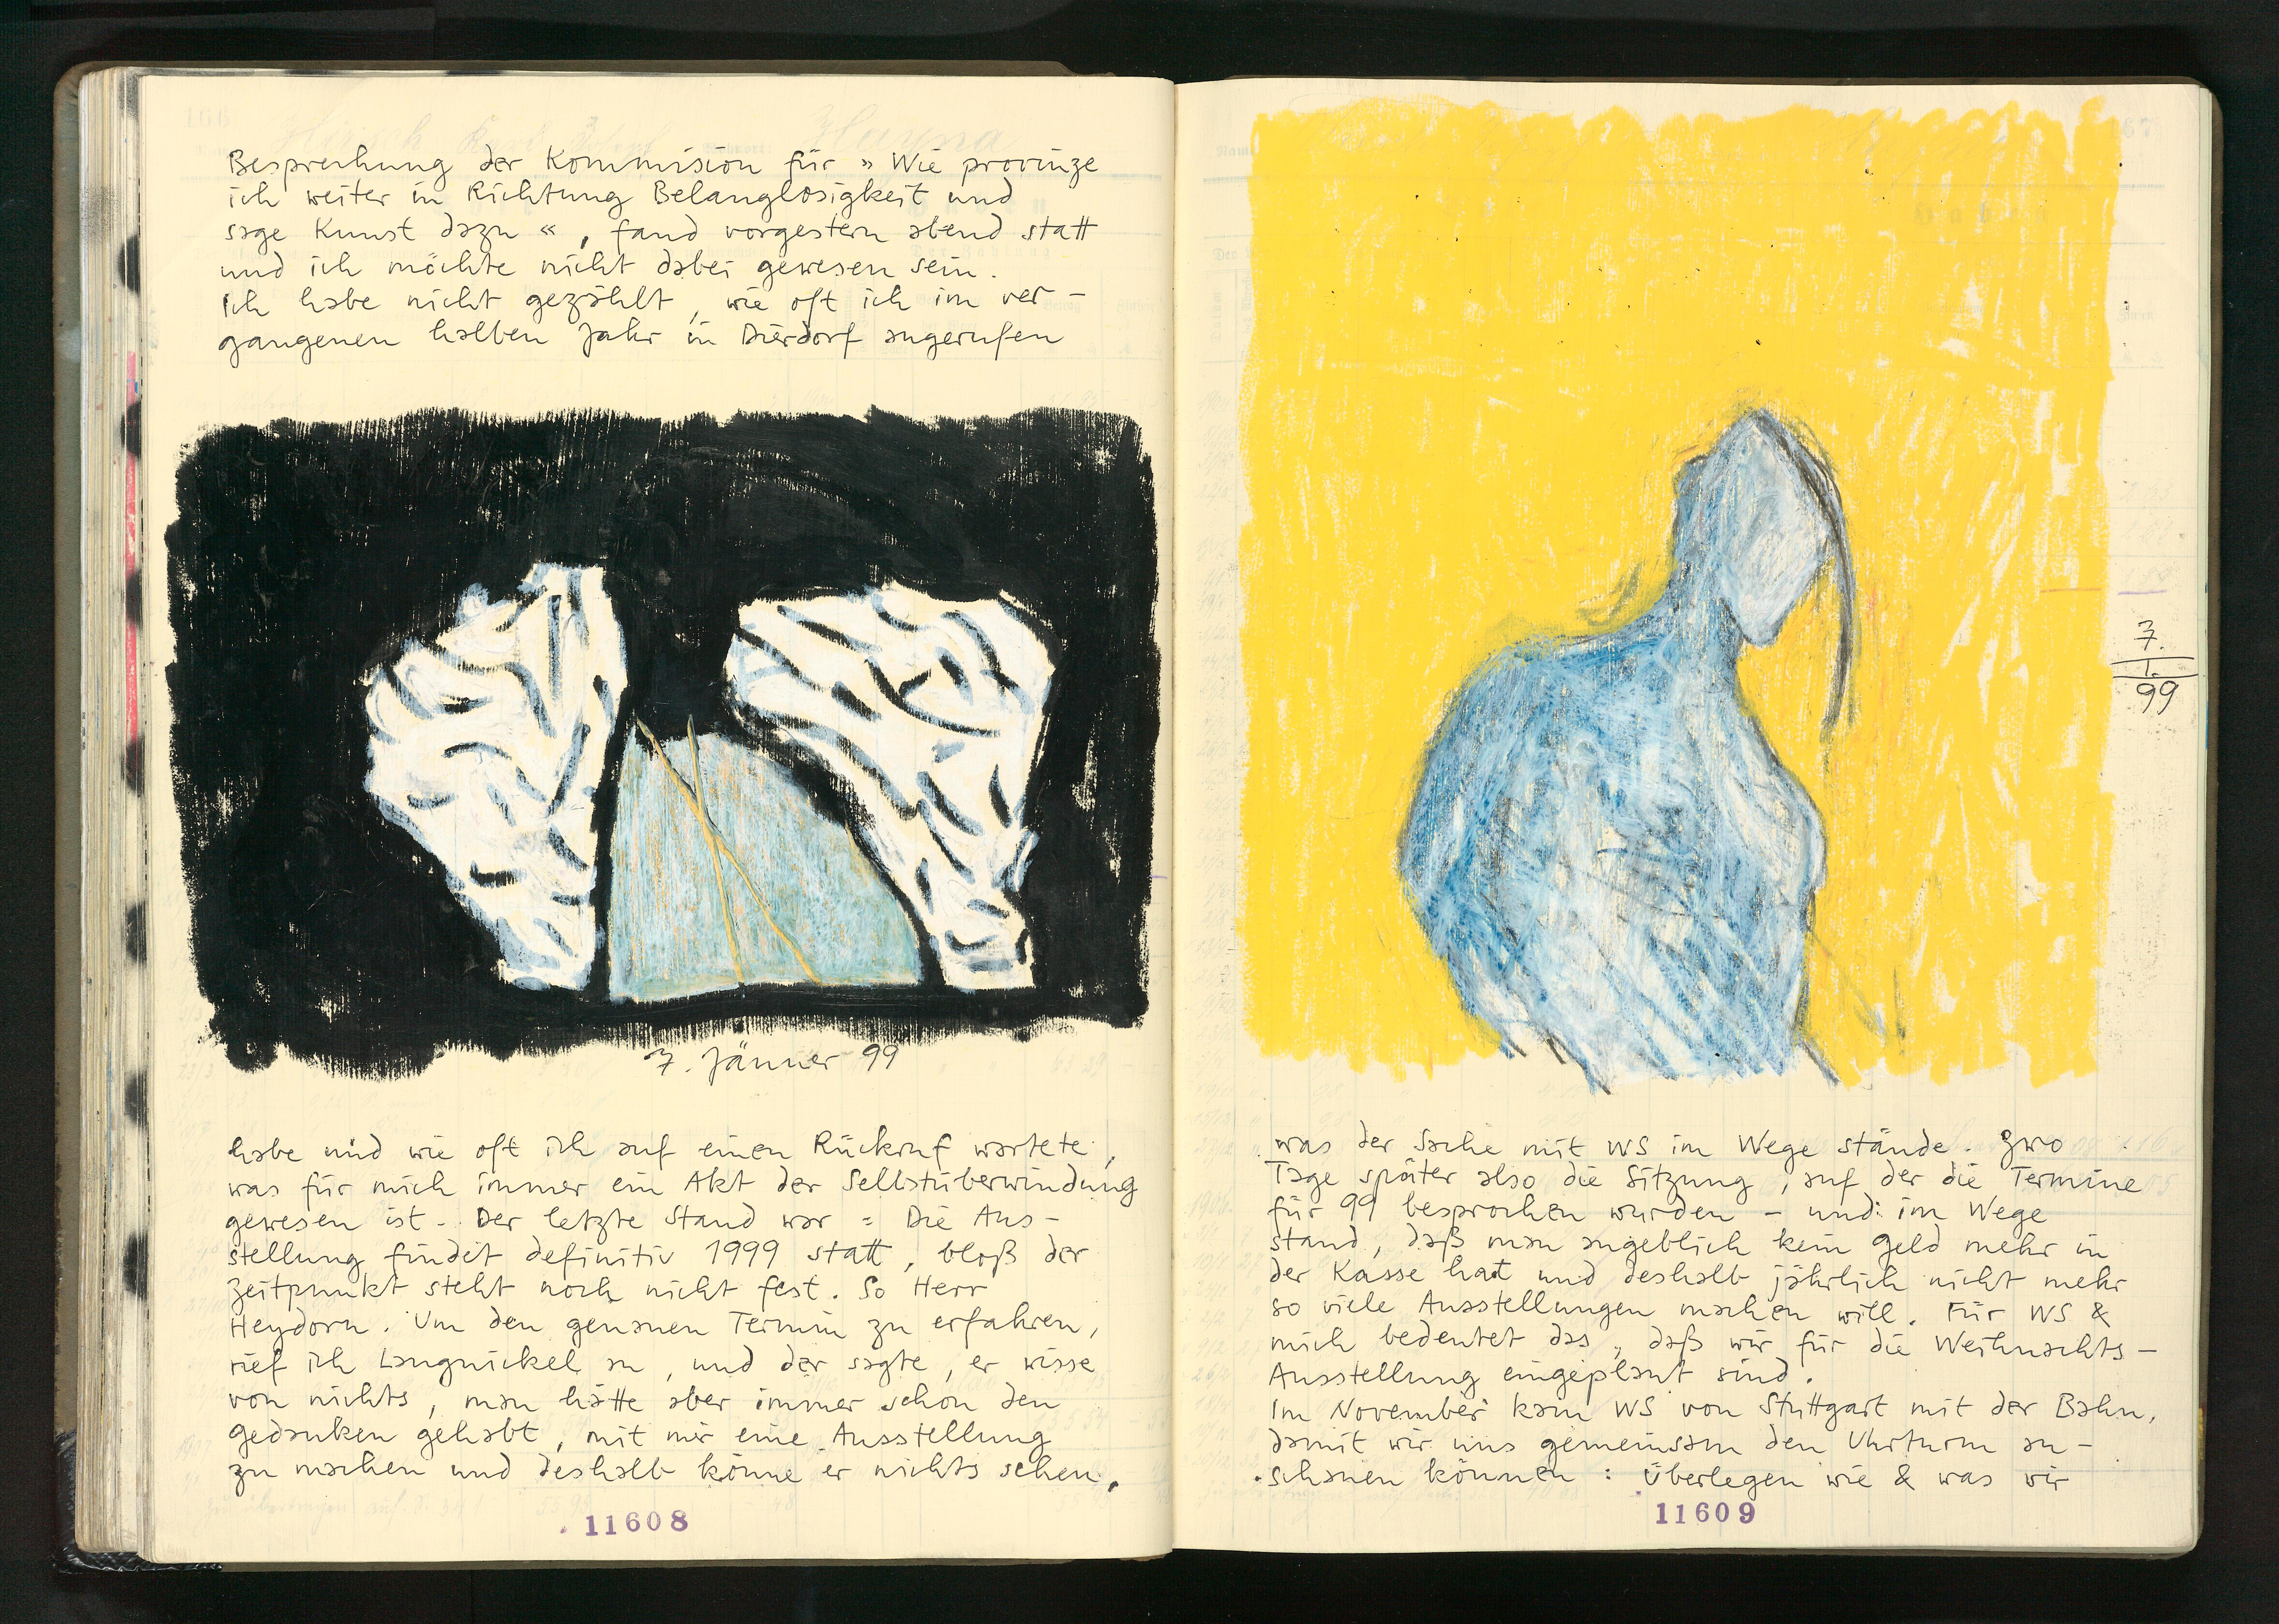 Besprechung der Kommision für » Wie provinze
ich weiter in Richtung Belanglosigkeit und
sage Kunst dazu «, fand vorgestern abend statt
und ich möchte nicht dabei gewesen sein.
Ich habe nicht gezählt, wie oft ich im ver-
gangenen halben Jahr in Dierdorf angerufen
7. Jänner 99
habe und wie oft ich auf einen Rückruf wartete,
was für mich immer ein Akt der Selbstüberwindung
gewesen ist. Der letzte Stand war: Die Aus-
stellung findet definitiv 1999 statt, bloß der
Zeitpunkt steht noch nicht fest. So Herr
Heydorn. Um den genauen Termin zu erfahren,
rief ich Langnickel an, und der sagte, er wisse
von nichts, man hätte aber immer schon den
Gedanken gehabt, mit mir eine Ausstellung
zu machen und deshalb könne er nichts sehen,
11608
7.
1.
99
was der Sache mit WS im Wege stände. Zwo
Tage später also die Sitzung, auf der die Termine
für 99 besprochen wurden - und: im Wege
stand, daß man angeblich kein Geld mehr in
der Kasse hat und deshalb jährlich nicht mehr
so viele Ausstellungen machen will. Für WS &
mich bedeutet das, daß wir für die Weihnachts-
Ausstellung eingeplant sind.
Im November kam WS von Stuttgart mit der Bahn,
damit wir uns gemeinsam den Uhrturm an-
schauen können: Überlegen wie & was wir
11609